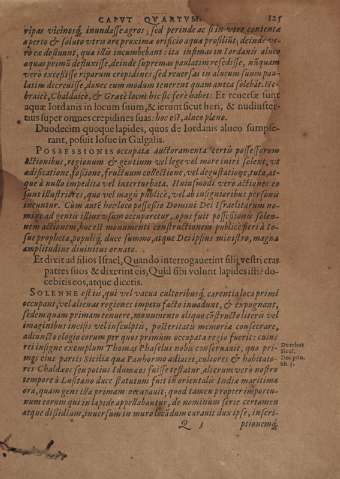 CAPVT QVARTVM. 125
ripas vicinosq́; inundasse agros; sed perinde ac si in vtre contenta
aperto & soluto vtris ore proxima orificio aqua prosiliit, deinde ve-
rò ea defluunt, quæ illis incumbebant: ita infimas in Iordanis alueo
aquas primũ defluxisse, deinde supremas paulatim resedisse, nũquam
verò excessisse riparum crepidines sed reuersas in alueum suum pau-
latim decreuisse, donec eum modum tenerent quem antea solebãt. He-
braicè, Chaldaicè, & Græcè locus hic sic ferè habet. Et reuersæ sunt
aquæ Iordanis in locum suum, & ierunt sicut heri, & nudiuster-
tius super omnes crepidines suas: hoc est, alueo pleno.
Duodecim quoque lapides, quos de Iordanis alueo sumpse-
rant, posuit Iosue in Galgalis.
POSSESSIONES occupata auctoramenta certis possessorum
actionibus, regionum & gentium vel lege vel more iniri solent, vt
ædificatione, fossione, fructuum collectione, vel degustatione, tuta, at-
que à nullo impedita vel interturbata. Huiusmodi verò actiones eo
sunt illustriores, quo vel magis publicè, vel ab insignioribus personis
ineuntur. Cùm autẽ hoc loco possessio Domini Dei Israelitarum no-
mine ad gentis illius vsum occuparetur, opus fuit possessionis solen-
nem actionem, hoc est monumenti constructionem publicè fieri à Io-
sue propheta, populiq́; duce summo, atque Dei ipsius ministro, magna
amplitudine diuinitus ornato.
Et dixit ad filios Israel, Quando interrogauerint filij vestri cras
patres suos & dixerint eis, Quid sibi volunt lapides isti? do-
cebitis eos, atque dicetis.
SOLENNE est iis, qui vel vacua cultoribusq́; carentia loca primi
occupant, vel alienas regiones impetu facto inuadunt, & expugnant,
sedem quam primam tenuere, monumento aliquo cõstructo literis vel
imaginibus incisis vel insculptis, posteritatis memoriæ consecrare,
adiuncto elogio eorum per quos primùm occupata regio fuerit: cuius
rei insigne exemplum Thomas Phaselus nobis conseruauit, quo pri-
mos eius partis Siciliæ quæ Panhormo adiacet, cultores & habitato-
res Chaldæos seu potius Idumæos fuisse testatur, alterum verò nostro
tempore à Lusitano duce statutum fuit in orientalis Indiæ maritima
ora, quam gens illa primùm occupauit, quod tamen propter importu-
num eorum qui in lapide appellabantur, de nominum serie certamen
atque dissidium, inuersum in muro locandum curauit dux ipse, inscri-
Q 3 ptionemq́;